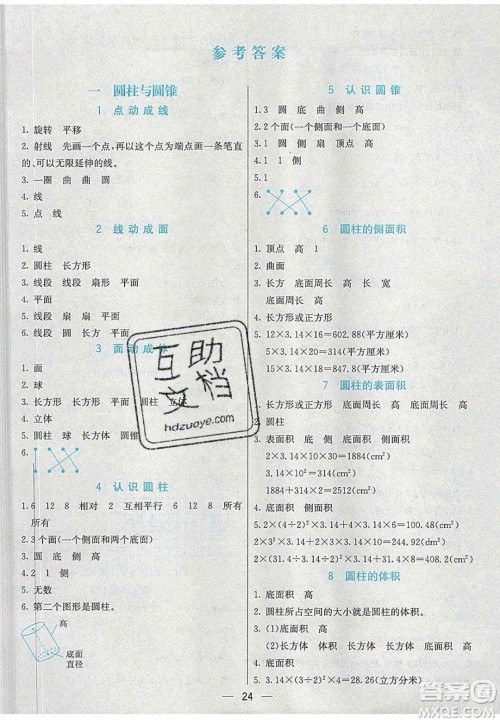 参考答案
一 圆柱与圆锥
1 点动成线
1. 旋转 平移
2. 射线 先画一个点,再以这个点为端点画一条笔直的、可以无限延伸的线。
3. 一圈 曲 曲 圆
4. 线
5. 点 线
2 线动成面
1. 线
2. 圆柱 长方形
3. 线段 线段 扇形 平移
4. 面
5. 线段 扇 扇 面
6. 线段 圆 长方 平移
3 面动成体
1. 面
2. 球
3. 长方 长方 平移 圆柱 立体
4. 立体
5. 圆柱 球 长方体 圆锥
6.
4 认识圆柱
1. 6 12 8 相对 2 互相平行 6 12 8 所有 所有
2. 3个面(一个侧面和两个底面)
3. 圆 底 侧 高
4. 2 1 侧
5. 无数
6. 第二个图形是圆柱。
高
底面
直径
5 认识圆锥
1. 3 圆 底 曲 侧 高
2. 2个面(一个侧面和一个底面)
3. 1 圆 侧 扇 顶点 高
4. 1
5. 1 1
6.
6 圆柱的侧面积
1. 顶点 高 1
2. 曲面
3. 长方 底面周长 高 长 宽
底面周长 高
4. 长方形或正方形
5. 12×3.14×16=602.88(平方厘米)
5×3.14×20=314(平方厘米)
7 圆柱的表面积
1. 长方形或正方形 底面周长 高 底面周长 高
2. 圆柱
3. 表面积 底面 侧 底面积 侧面积
2×3.14×10×30=1884(cm²)
3.14×10²=314(cm²)
1884+314×2=2512(cm²)
4. 底面积 侧面积
5. 2×(4÷2)²×3.14+2×4×3.14×2=
2×(31.4÷3.14÷2)²×3.14+31.4×8=408.2(cm²)
8 圆柱的体积
1. 底面积 高
2. 圆柱所占空间的大小就是圆柱的体积。
3. (1)底面积 高
(2)长方体 长方体 体积 底面积 高
4. 底面积 高
5. 3.14×(3÷2)²×4=28.26(立方分米)
24
互助文档
hdzuoye.com
答案圈
MXQE.COM